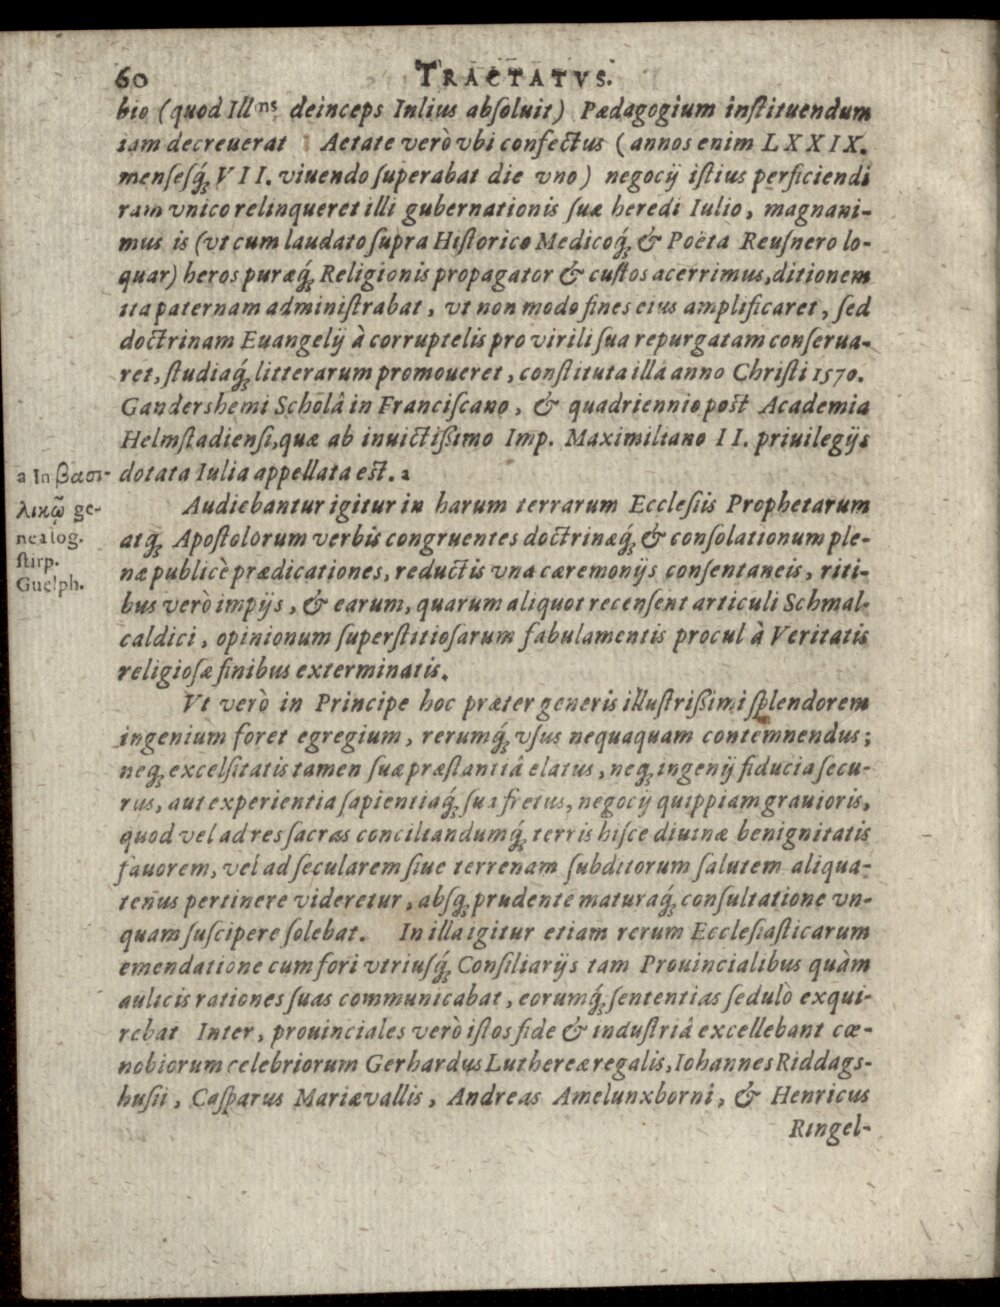 60 TRACTATVS.
bio (quod Illms deinceps Iulius absoluit) Pædagogium instituendum
iam decreuerat Aetate verò vbi confectus (annos enim LXXIX.
mensesq́; VII. viuendo superabat die vno) negocij istius perficiendi
ram vnico relinqueret illi gubernationis suæ heredi Iulio, magnani-
mus is (vt cum laudato supra Historico Medicoq́; & Poëta Reusnero lo-
quar) heros puræq́; Religionis propagator & custos acerrimus, ditionem
ita paternam administrabat, vt non modo fines eius amplificaret, sed
doctrinam Euangelij à corruptelis pro virili sua repurgatam conserua-
ret, studiaq́; litterarum promoueret, constituta illâ anno Christi 1570.
Gandershemi Scholâ in Franciscano, & quadriennio post Academia
Helmstadiensi, quæ ab inuictißimo Imp. Maximiliano II. priuilegijs
dotata Iulia appellata est. a
a In βασι-
λικῷ ge-
nealog.
stirp.
Guelph.
Audiebantur igitur in harum terrarum Ecclesiis Prophetarum
atq́; Apostolorum verbis congruentes doctrinæq́; & consolationum ple-
næ publicè prædicationes, reductis vna cæremonijs consentaneis, riti-
bus verò impijs, & earum, quarum aliquot recensent articuli Schmal-
caldici, opinionum superstitiosarum fabulamentis procul à Veritatis
religiosæ finibus exterminatis.
Vt verò in Principe hoc præter generis illustrißimi splendorem
ingenium foret egregium, rerumq́; vsus nequaquam contemnendus;
neq; excelsitatis tamen suæ præstantiâ elatus, neq; ingenij fiducia secu-
rus, aut experientia sapientiaq́; sua fretus, negocij quippiam grauioris,
quod vel ad res sacras conciliandumq́; terris hisce diuinæ benignitatis
fauorem, vel ad secularem siue terrenam subditorum salutem aliqua-
tenus pertinere videretur, absq; prudente maturaq́; consultatione vn-
quam suscipere solebat. In illa igitur etiam rerum Ecclesiasticarum
emendatione cum fori vtriusq́; Consiliarijs tam Prouincialibus quàm
aulicis rationes suas communicabat, eorumq́; sententias sedulò exqui-
rebat Inter, prouinciales verò istos fide & industriâ excellebant cœ-
nobiorum celebriorum Gerhardus Luthereæ regalis, Iohannes Riddags-
husii, Casparus Mariævallis, Andreas Amelunxborni, & Henricus
Ringel-